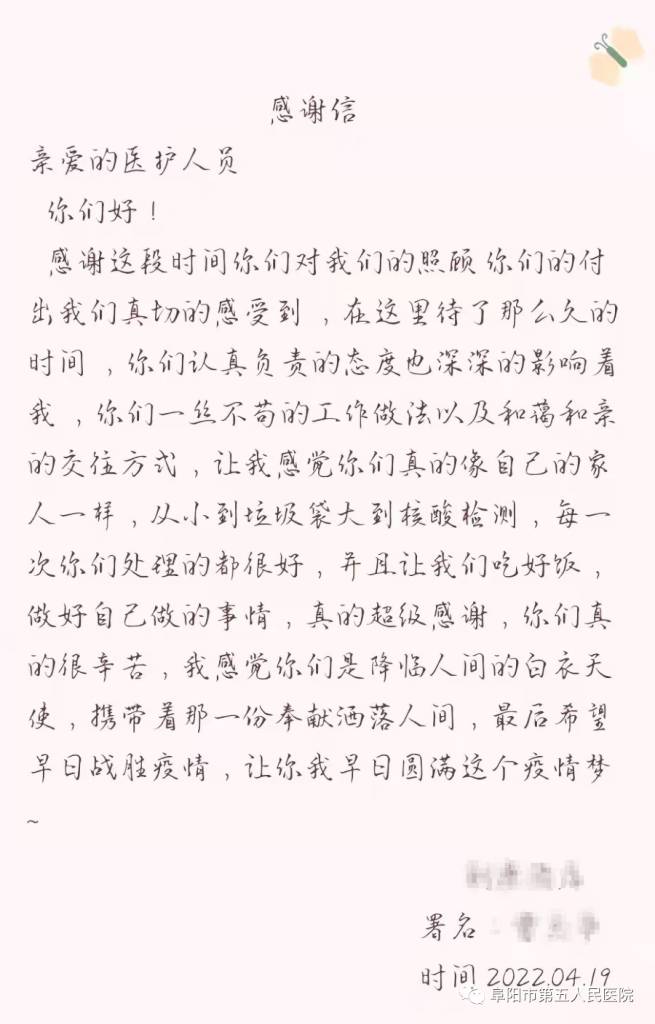 感谢信
亲爱的医护人员
你们好！
感谢这段时间你们对我们的照顾 你们的付
出我们真切的感受到，在这里待了那么久的
时间，你们认真负责的态度也深深的影响着
我，你们一丝不苟的工作做法以及和蔼和亲
的交往方式，让我感觉你们真的像自己的家
人一样，从小到垃圾袋大到核酸检测，每一
次你们处理的都很好，并且让我们吃好饭，
做好自己做的事情，真的超级感谢，你们真
的很辛苦，我感觉你们是降临人间的白衣天
使，携带着那一份奉献洒落人间，最后希望
早日战胜疫情，让你我早日圆满这个疫情梦
~
署名：
时间 2022.04.19
阜阳市第五人民医院